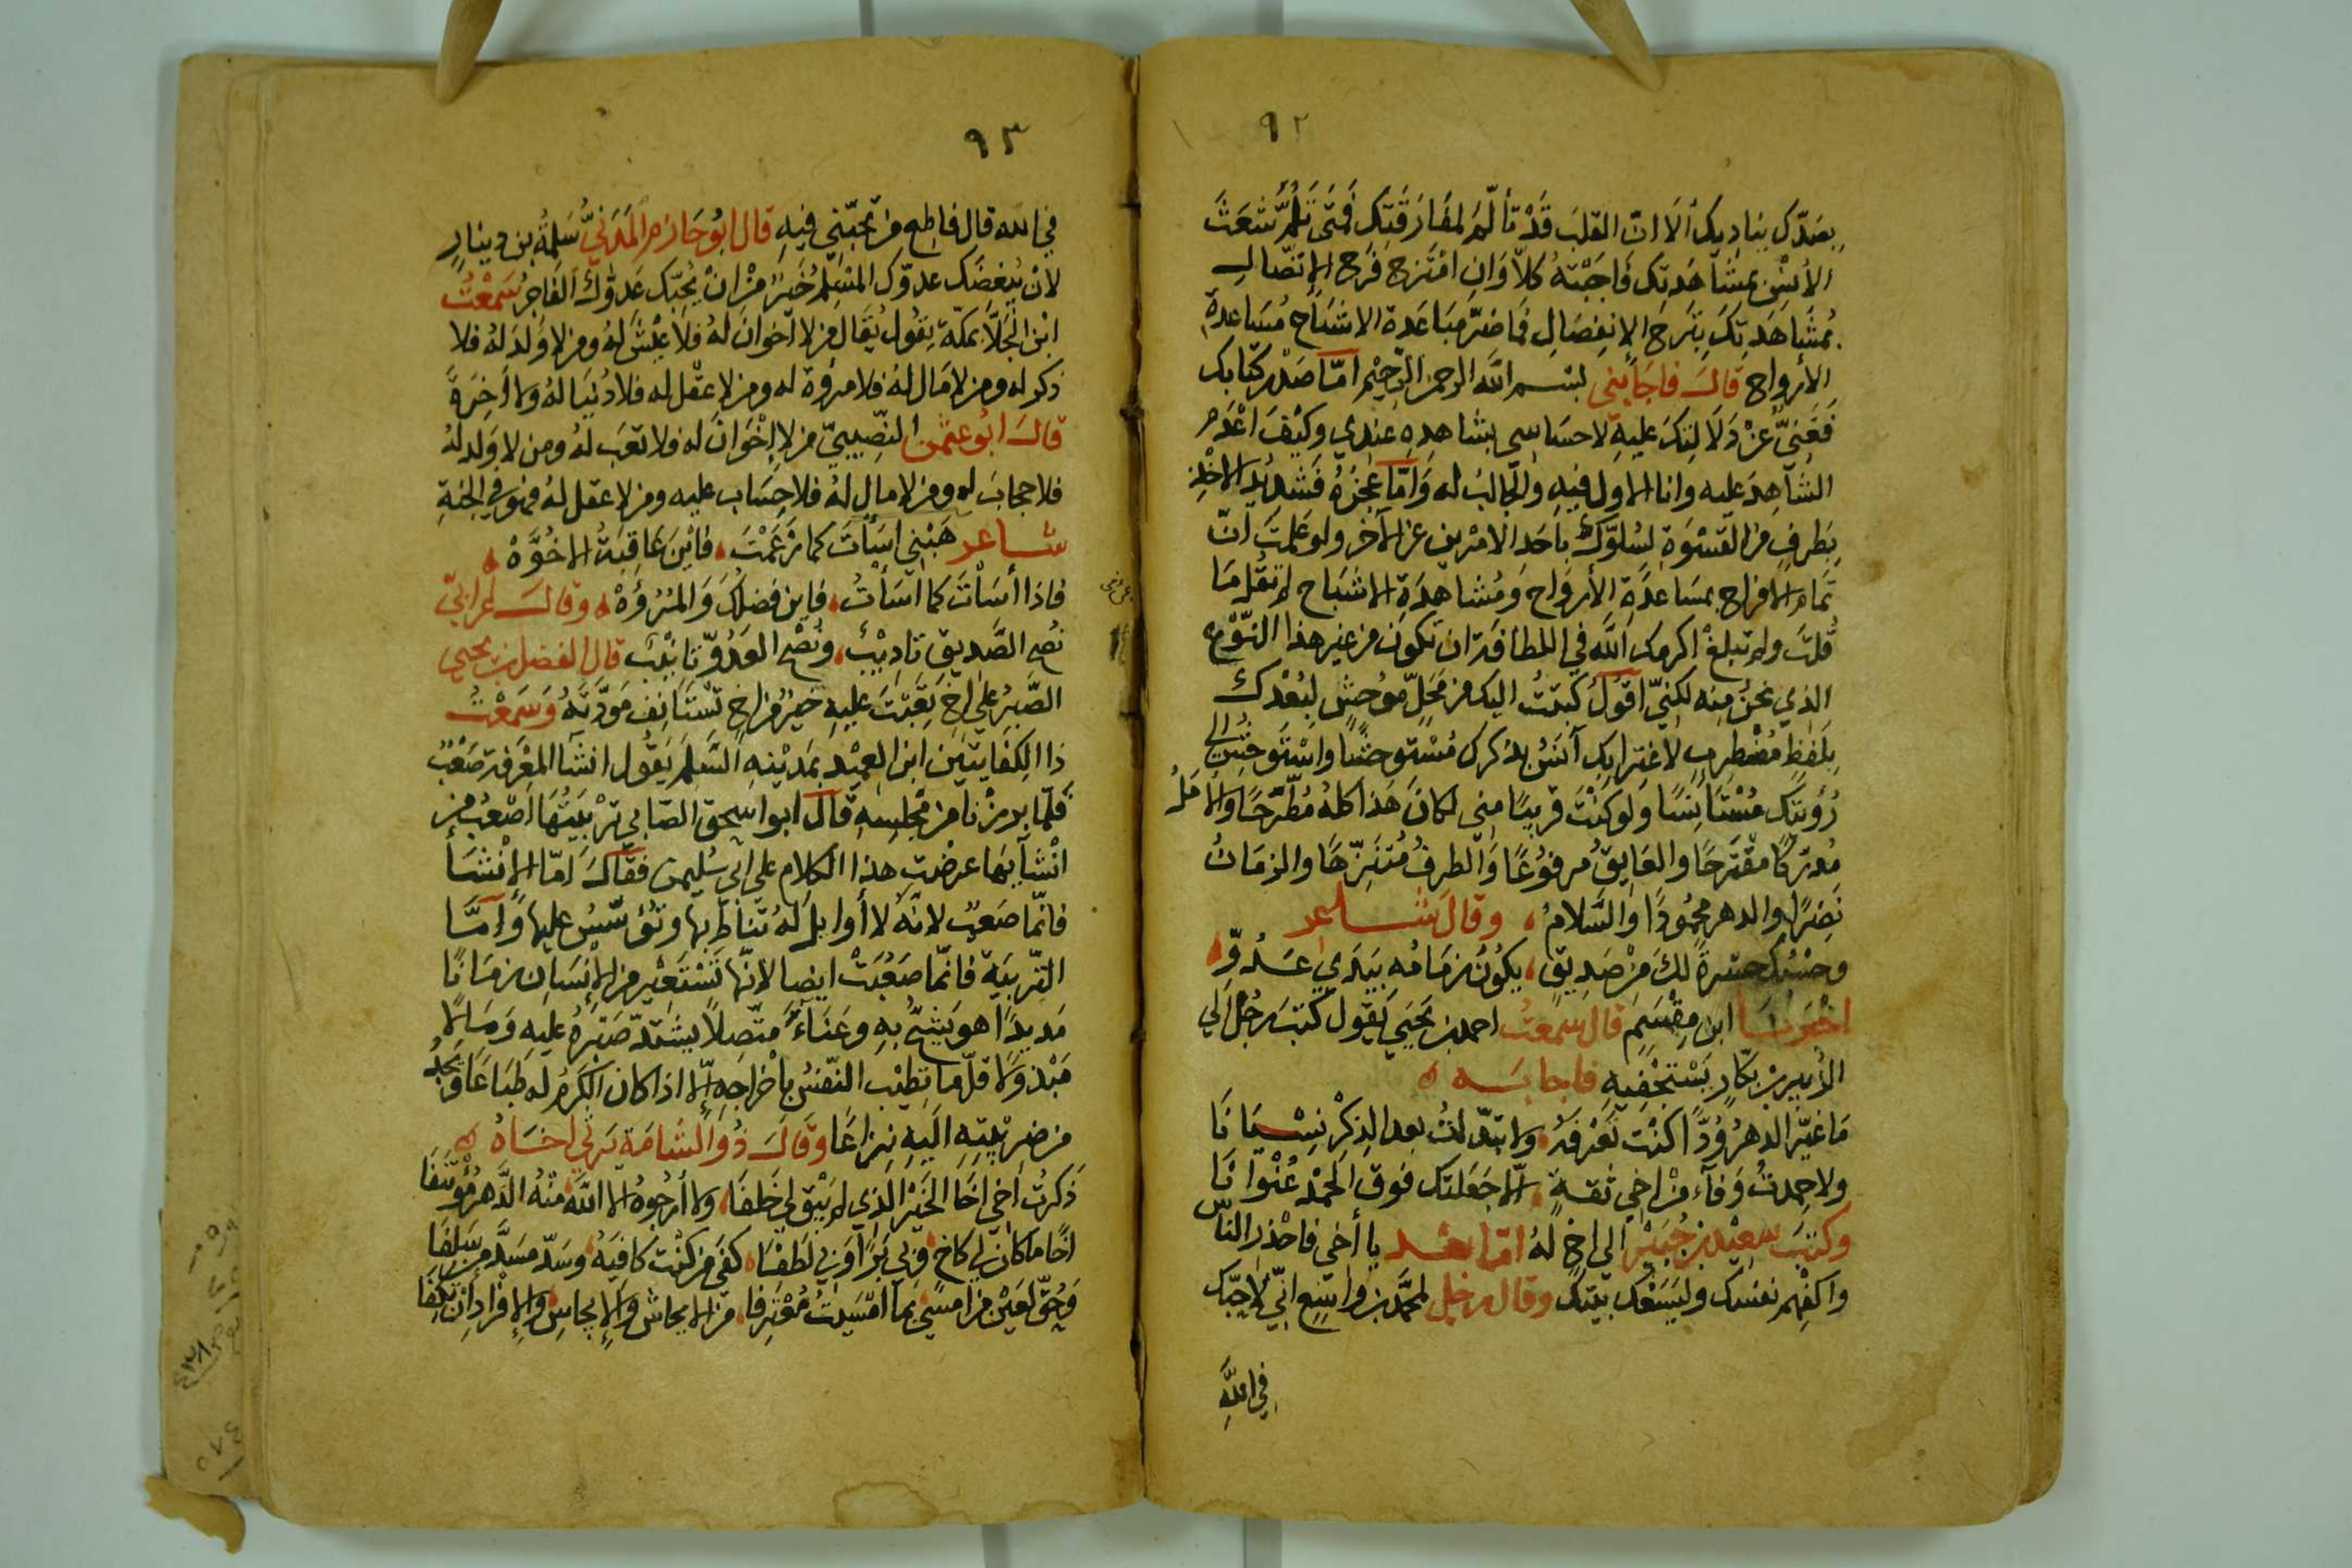 ٩٢
بصدّك يناديك ألا انّ القلبَ قَدْ تألّم لمفارقتك فمتى تلمّ شعَثَ
الأنسِ بمشَاهَدتِك فأجَبْتهُ كلاّ وَانِ امْتَزج فَرَح الاتّصالِ
بمُشَاهَدتِكَ بتَرح الانفِصَالِ فما ضرّ مبَاعَدة الاشبَاح مُسَاعدة
الأرواح قالَ فاجابني بسم الله الرحمن الرّحيم أمّا صَدْر كتابك
فَغَنيٌّ عَنْ دَلالتِكَ عليهِ لاحسَاسي بشاهدِه عندي وكيْفَ اعْدَم
الشاهدَ عليه وانا الاول فيهِ والجالبُ له وَامّا عجزهُ فَشديْد الاخْذ
بطَرفٍ من القسْوَة لسُلوّك باحَد الامْرين عن الآخر ولو عَلمتَ انّ
تمام الافراح بمسَاعدَة الأرواح وَمُشاهدَة الاشبَاح لم تقُل مَا
قُلتَ ولم تبلغْ اكرمك الله في اللطافة ان تكون من غير هذا النّوْع
الذي نحنُ منه لكنّي اقولُ كتبتُ اليك من محَلٍّ موحشٍ لبُعْدك
بلَفظٍ مُضْطربٍ لاغترابك آنسُ بذكرك مُسْتوحشًا واسْتوحش الى
رُؤيتك مُسْتَانسًا وَلو كنْتَ قريبًا مني لكانَ هَذا كلهُ مُطَّرحًا والأمَلُ
مُدرَكًا مقْتَرحًا والعَايقُ مرفوُعًا وَالطرفُ مُتَنزِّهًا والزمَانُ
نَضِرًا والدهر محمُودًا وَالسَّلامُ ، وقالَ شاعر
وحسْبُك حسْرةً لكَ مِنْ صَديقٍ ، يكوُنُ زمَامُه بيَدَي عَدوِّ
اخْبرنا ابن مِقْسَمٍ قال سمعتُ احمد بن يحيَى يقول كتبَ رجُل الى
الزُّبير بن بكّارٍ يَسْتخْفيهِ فاجابه ه
مَا غيَّر الدهرُ وُدًّا كنْت تعْرفهُ ، ولا تبدّلتُ بعدَ الذِكْر نِسْيَانَا
ولا حمِدتُ وَفآء مِنْ اخي ثقَةٍ ، الّا جَعَلتك فوق الحَمْد عُنْوانَا
وكتبَ سعيْد بن جُبَيْر الى اخٍ لهُ امّا بعد يا أخي فاحْذر النّاسَ
واكفِهم نفسَك وليَسَعْك بيتك وقال رجل لمحمّد بن واسع انّي لاحبّك
في اللهِ
٩٣
في الله قال فاطِع من تحبّني فيهِ قال ابُو حَازم المَدَنيُّ سَلمةُ بن دينارٍ
لان يُبغضَك عدوّك المُسْلِمُ خَيرٌ مِنْ انْ يحُبّك عَدوّك الفاجِرُ سمعْتُ
ابْن الجَلاّ بمكّة يقُول يُقَال من لا اخوانَ لهُ فلا عيْشَ لهُ ومن لا وَلدَ لهُ فلا
ذكر له ومن لا مَال لهُ فلا مروّة له ومن لا عقْل له فلا دُنيَا لهُ ولا آخرَةَ
قالَ ابُو عثمن النّصِيبيّ من لا اخْوَانَ له فلا تعَب لهُ ومن لا وَلد لهُ
فلا حجابَ له ومن لا مال لهُ فلا حِسَاب عليه ومن لا عقل لهُ فهو في الجنةِ
شاعر هَبْني اسَأتُ كما زَعَمْتَ ، فايْنَ عَاقبَةُ الاخُوَّهْ ه
فاذا أسَأتَ كما اسَأتُ ، فاين فضلُكَ وَالمُرُوّهْ ، وقالَ اعرابيّ
نُصح الصَّديق تاديْبٌ ، ونُصْح العَدُوّ تانيْبٌ قال الفضل بن يحيى
الصَّبرُ على اخٍ تَعْتبُ عليهِ خيرٌ من اخٍ تَسْتَانِف مَودّتَهُ وَسَمعْتُ
ذَا الكفَايتَين ابن العميْد بمَديْنهِ السَّلمِ يَقُول انشآ المعْرفة صَعْبٌ
فَلمّا برزْنا من مجْلسِه قال ابو اسحق الصّابي تَرْبيَتُهَا اصْعَبُ من
انْشآئهَا عرضْت هذا الكلام على ابي سُليمن فقَالَ امّا الإنْشآء
فانّما صَعُب لانّهُ لا أوايل لهُ تناط بها وتُؤَسَّسُ عليها وَامّا
التّربيَة فانّما صَعُبَتْ ايضا لانّها تَسْتَعيْر من الإنسَان زمَانًا
مَديدًا هو يَشِحُّ بهِ وعَنَآءً متّصلاً يشتدّ صَبرهُ عليه وَمَالاً
مبْذولاً قلّما تطيْب النّفسُ باخراجهِ الّا اذا كان الكرَم له طبَاعًا وَيجدُ
من ضريْبتِه اليهِ نزاعًا وقالَ ذُو الشامَة يرثي اخَاهُ ه
ذكرْتُ اخي اخَا الخيْر الذي لم يَبْق لي خَلفَا ، ولا أرجُوهُ الا الله منْهُ الدَّهر مُؤْتَنفَا
اخًا ما كانَ لي كاخٍ وَبي بَرًا وَبي لَطَفَا ، كفى من كنْت كافيهُ وسَدّ مسَدَّ من سَلفَا
وَحُقّ لعَيْن من امسَى بما امْسَيتُ مُعْترفا ، من الايحاش والايجاسِ والافرادِ ان تكِفَا